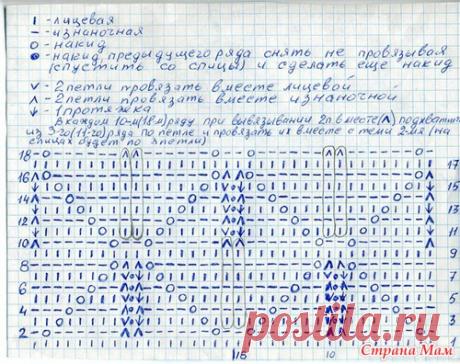 | - лицевая
— - изнаночная
○ - накид
● - накид предыдущего ряда снять не провязывая
(спустить со спицы) и сделать еще накид
v - 2 петли провязать вместе лицевой
ʌ - 2 петли провязать вместе изнаночной
↓ - 1 протяжка
В каждом 10-м (18м) ряду при вывязывании 2п вместе (ʌ) подхватить
из 3-го (11-го) ряда по петле и провязать их вместе с теми 2-мя (на
спицах будет по 3 петли)
18
17
16
15
14
13
12
11
10
9
8
7
6
5
4
3
2
1
15 10
posting.ru
Страна Мам